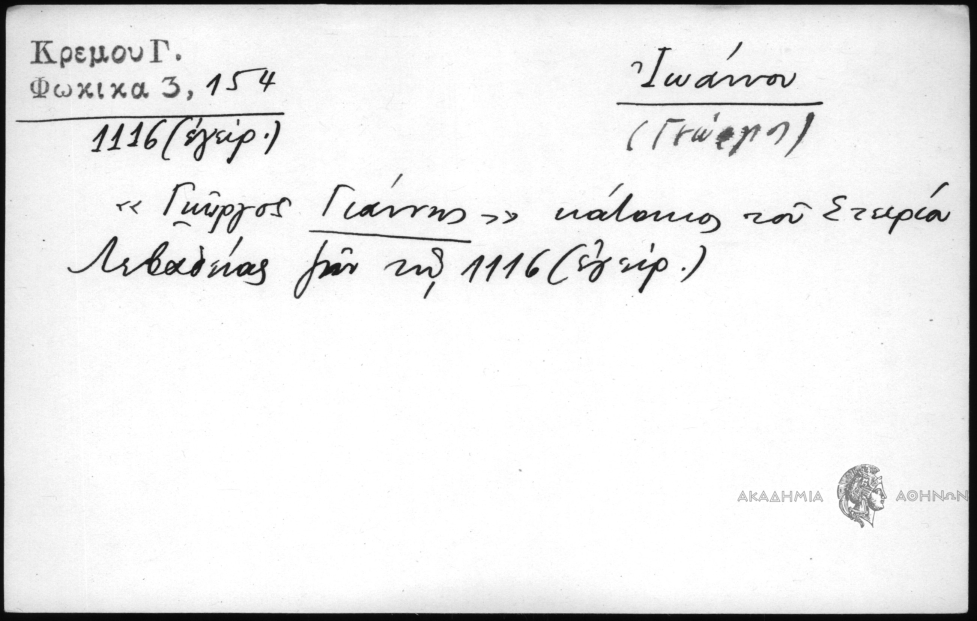 Κρεμου Γ.
Φωκικα 3, 154
1116 (ἐγειρ.)
Ἰωάννου
(Γεώργιος)
« Γκιῶργος Γιάννης » κάτοικος τοῦ Στειρίου
Λεβαδείας ζῶν τῷ 1116 (ἐγειρ.)
ΑΚΑΔΗΜΙΑ ΑΘΗΝΩΝ